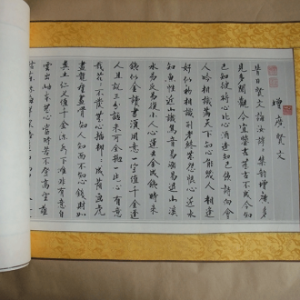 增廣賢文
昔日賢文誨汝諄諄集韻增廣多
見多聞觀今宜鑒古無古不成今知
己知彼將心比心酒逢知己飲詩向會
人吟相識滿天下知心能幾人相逢
好似初相識到老終無怨恨心近水
知魚性近山識鳥音易漲易退山溪
水易反易覆小人心運去金成鐵時來
鐵似金讀書須用意一字值千金逢
人且說三分話未可全拋一片心有意
栽花花不發無心插柳柳成蔭畫虎
畫龍難畫骨知人知面不知心錢財如
糞土仁義值千金流水下灘非有意白
雲出岫本無心當時若不登高望誰